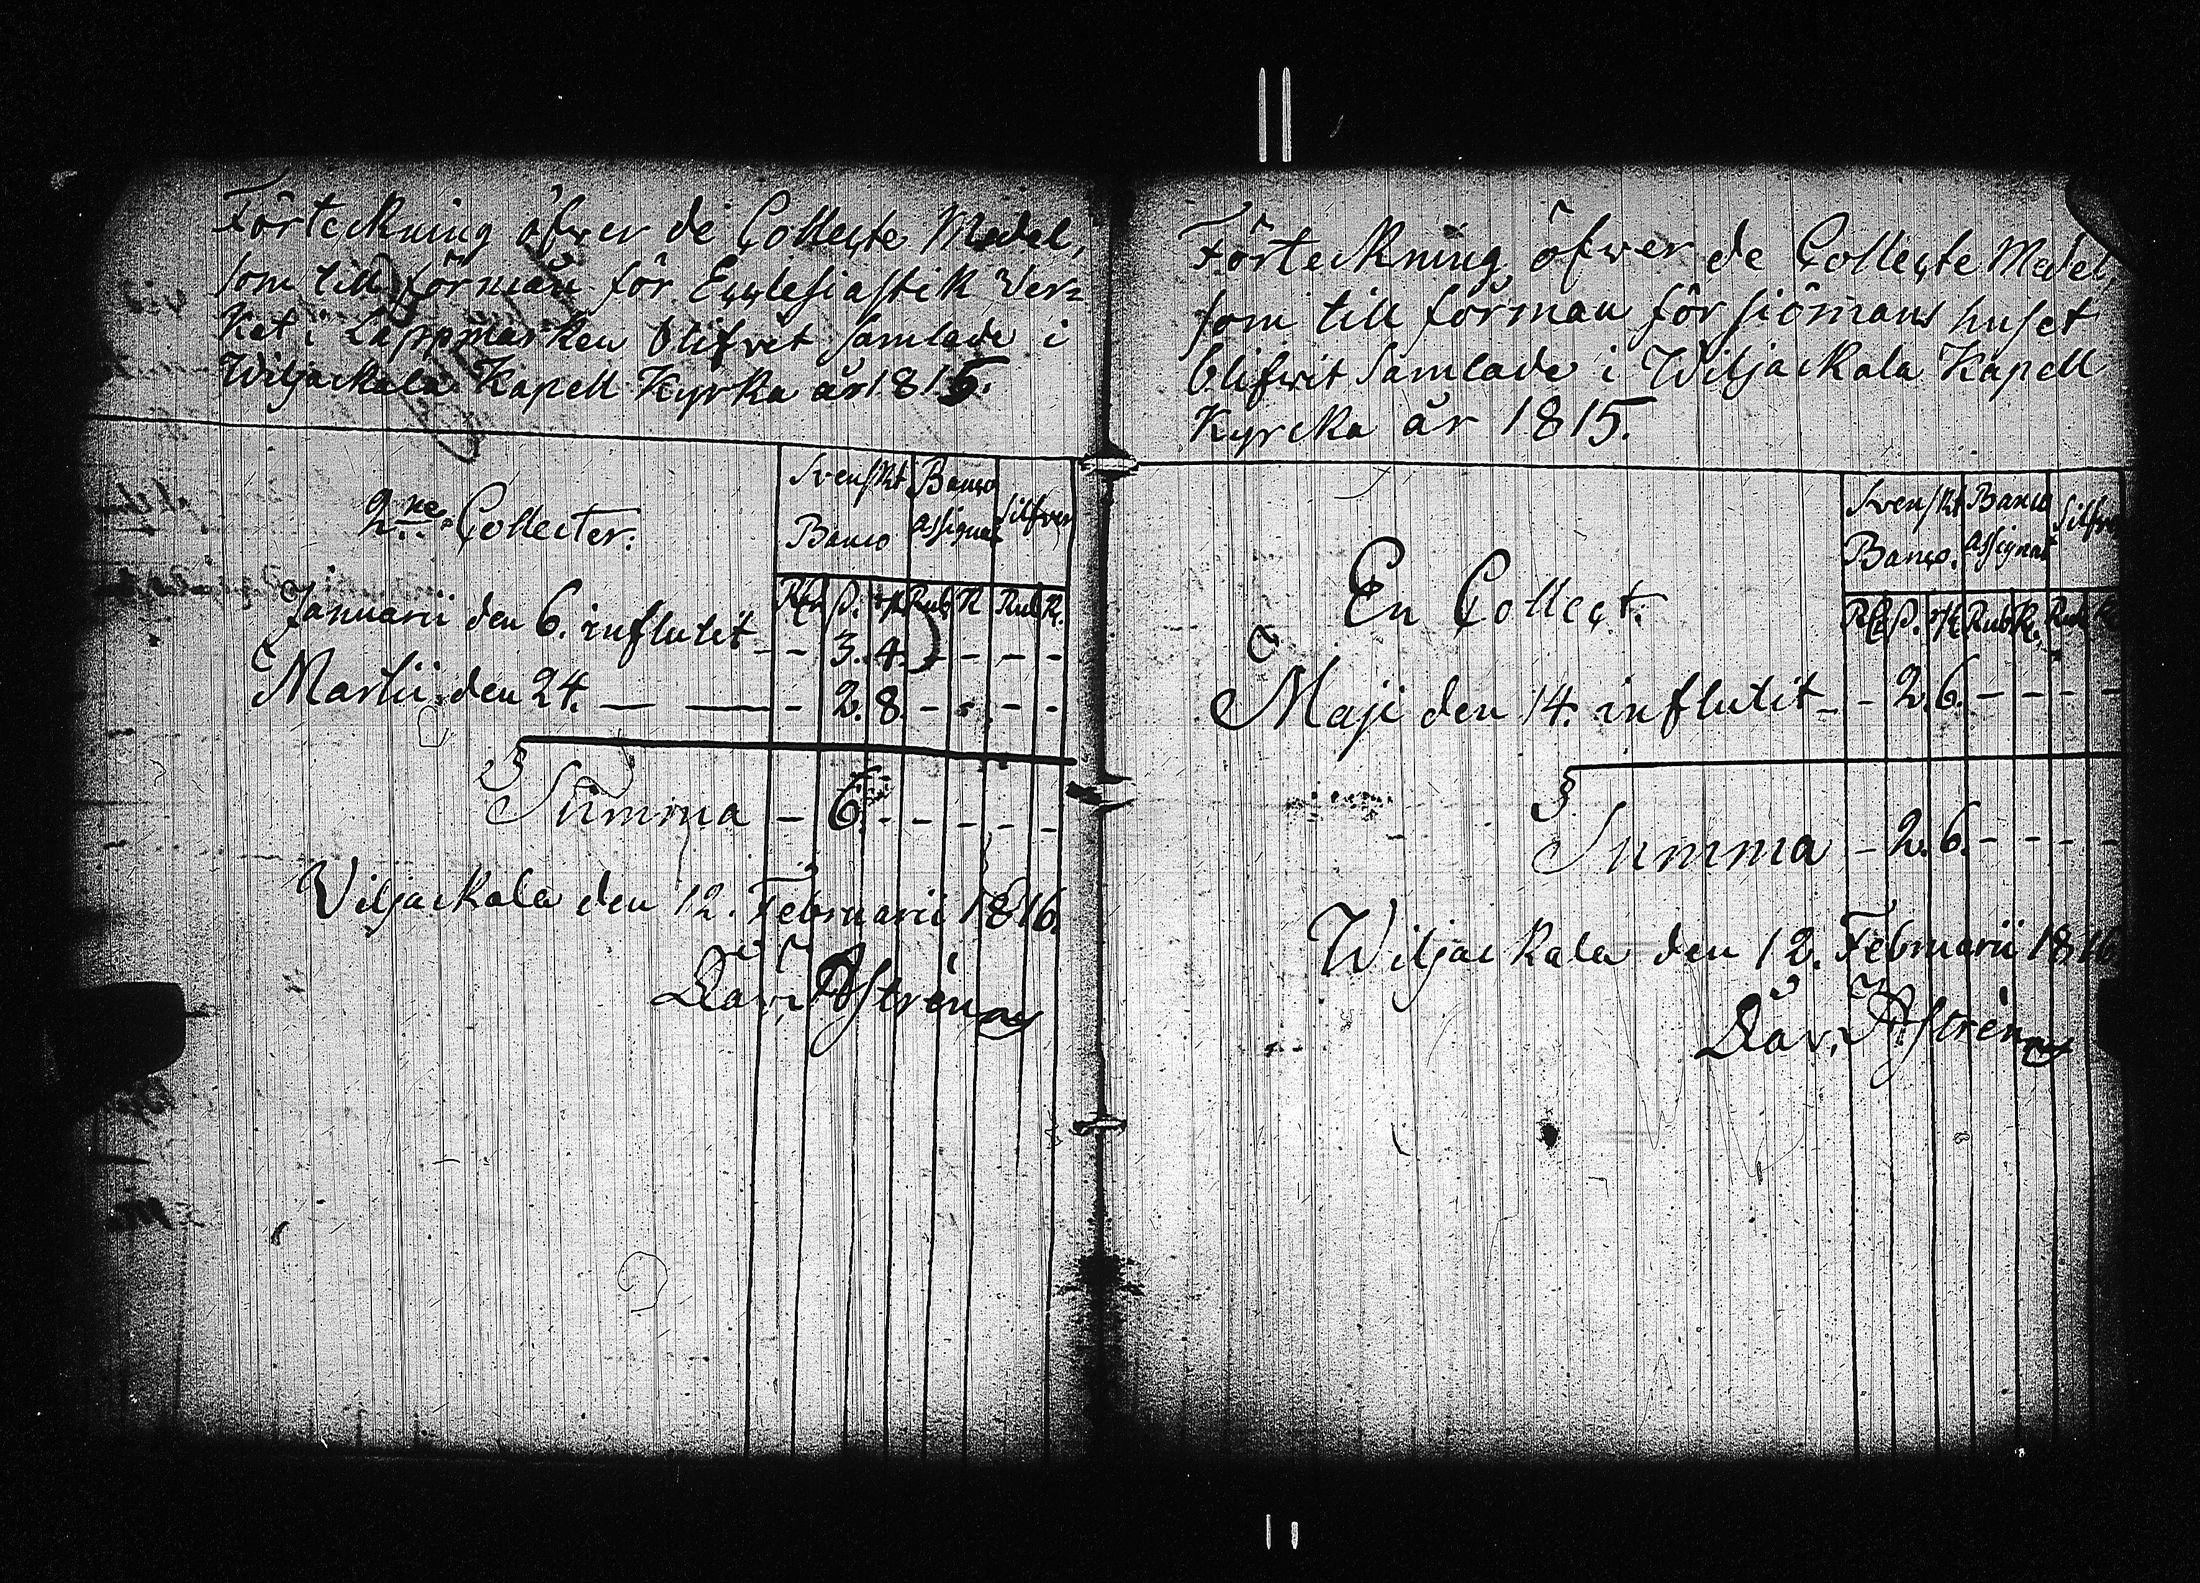 Förteckning öfwer de Collecte Medel,
som till förmån för Ecclesiastik Ver=
ket i Lappmarken blifvit samlade i
Wiljackala Kapell Kyrka år 1815.
Svenskt Banco Silfver
2ne Collecter.
Banco Assignat
Rdr ß. rst Rub K Rub K.
Januarii den 6. influtit - - 3. 4. - - - -
Martii den 24. — — - 2. 8. - - - -
Summa - 6. - - - - -
Viljackala den 12. Februarii 1816.
Dav. Aströn
Förteckning öfwer de Collecte Medel,
som till förmån för siömans huset
blifwit samlade i Wiljackala Kapell
Kyrcka år 1815.
Svenskt Banco Silfver
Banco. Assignat
En Collect.
Rdr ß. rst Rub K. Rub K
Maji den 14. influtit - - 2. 6. - - - -
Summa - 2. 6. - - - -
Wiljackala den 12. Februarii 1816
Dav. Aströn